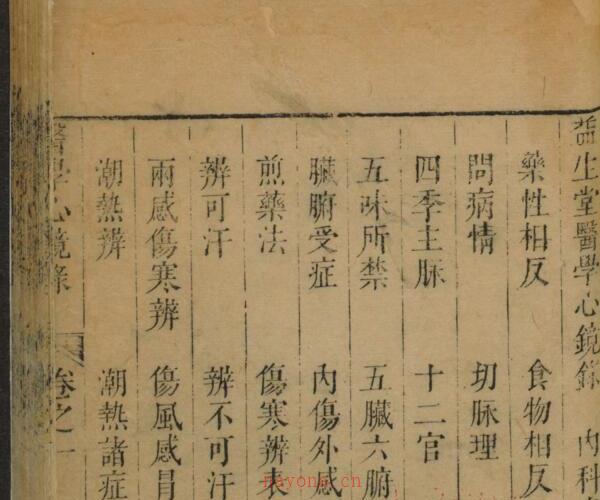 益生堂醫學心鏡錄 內科
藥性相反 食物相反
問病情 切脉理
四季主脉 十二官
五味所禁 五臟六腑
臟腑受症 內傷外感
煎藥法 傷寒辨表
辨可汗 辨不可汗
兩感傷寒辨 傷風感冒
潮熱辨 潮熱諸症
醫學心鏡錄 卷之一
nayong.cn